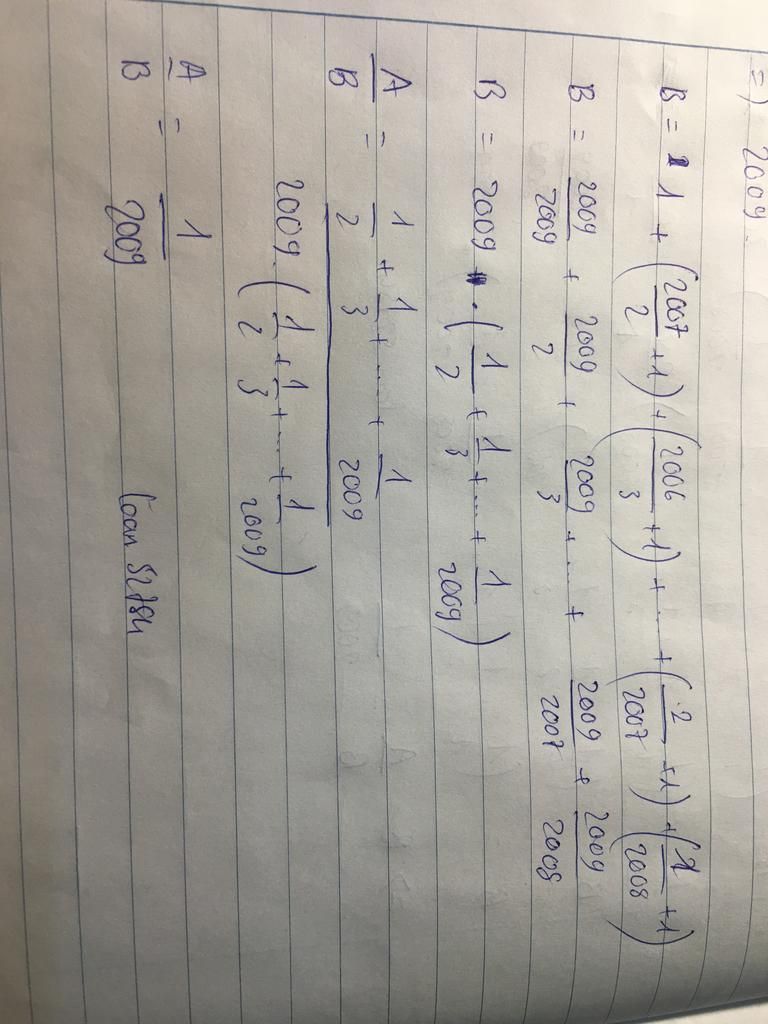 =) 2009.
B = 1 + (2007/2 + 1) + (2006/3 + 1) + ... + (2/2007 + 1) + (1/2008 + 1)
B = 2009/2009 + 2009/2 + 2009/3 + ... + 2009/2007 + 2009/2008
B = 2009 . (1/2 + 1/3 + ... + 1/2009)
A/B = 1/2 + 1/3 + ... + 1/2009
2009 . (1/2 + 1/3 + ... + 1/2009)
A/B = 1/2009